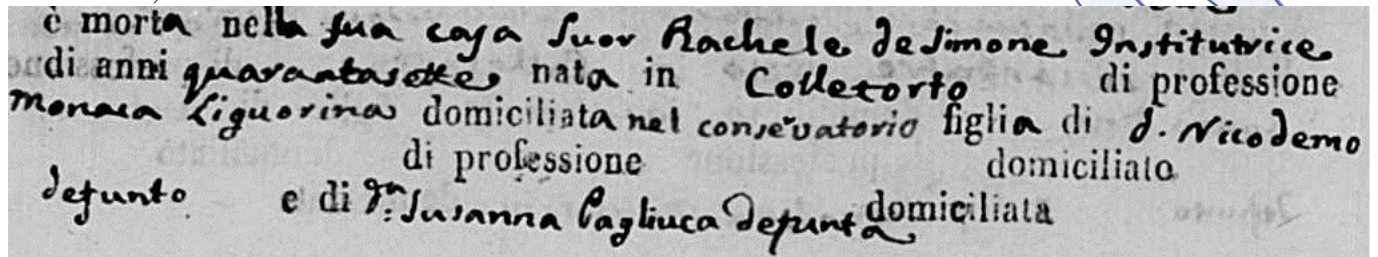 è morta nella sua casa Suor Rachele de Simone Institutrice
di anni quarantasette nata in Colletorto di professione
Monaca Liguorina domiciliata nel conservatorio figlia di d. Nicodemo
di professione domiciliato
defunto e di D.ª Susanna Pagliuca defunta domiciliata